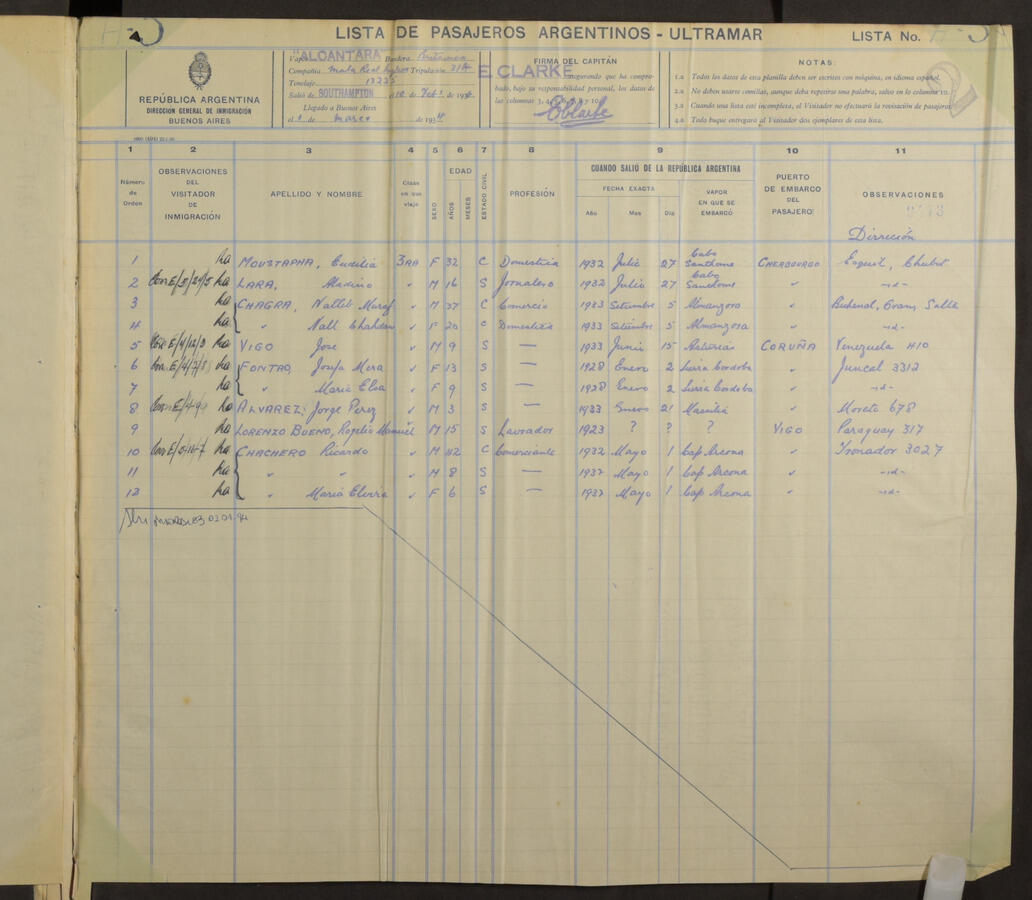 LISTA DE PASAJEROS ARGENTINOS - ULTRAMAR
LISTA No.
REPÚBLICA ARGENTINA
DIRECCIÓN GENERAL DE INMIGRACIÓN
BUENOS AIRES
Vapor "ALCANTARA" Bandera
Compañía Mala Real Tripulación
Tonelaje
Salió de SOUTHAMPTON el de Feb. de
Llegado a Buenos Aires
el de marzo de 1934
FIRMA DEL CAPITÁN
E. CLARKE asegurando que ha comprobado, bajo su responsabilidad personal, los datos de las columnas 3, 4, 5, 6, 7, 8, 9 y 10.
EClarke
NOTAS:
1.a Todos los datos de esta planilla deben ser escritos con máquina, en idioma español.
2.a No deben usarse comillas, aunque deba repetirse una palabra, salvo en la columna 10.
3.a Cuando una lista esté incompleta, el Visitador no efectuará la revisación de pasajeros.
4.a Todo buque entregará al Visitador dos ejemplares de esta lista.
1 2 3 4 5 6 7 8 9 10 11
Número de Orden
OBSERVACIONES DEL VISITADOR DE INMIGRACIÓN
APELLIDO Y NOMBRE
Clase en que viaja
SEXO
EDAD
AÑOS
MESES
ESTADO CIVIL
PROFESIÓN
CUANDO SALIÓ DE LA REPÚBLICA ARGENTINA
FECHA EXACTA
Año Mes Día
VAPOR EN QUE SE EMBARCÓ
PUERTO DE EMBARCO DEL PASAJERO
OBSERVACIONES
Dirección
1 MOUSTAPHA, 3RA F 32 C Domestica 1932 Julio 27 Cabo Santhome CHERBOURGO Esquel, Chubut
2 LARA, Aladino " M 16 S Jornalero 1932 Julio 27 Cabo Santhome " -id-
3 CHAGRA, " M 37 C Comercio 1933 Setiembre 5 Almanzora "
4 " " F 20 C Domestica 1933 Setiembre 5 Almanzora " -id-
5 VIGO Jose " M 9 S — 1933 Junio 15 Asturias CORUÑA Venezuela
6 FONTAO, Josefa " F 13 S — 1928 Enero 2 Sierra Cordoba " Juncal 3312
7 " Maria Elsa " F 9 S — 1928 Enero 2 Sierra Cordoba " -id-
8 ALVAREZ, Jorge Perez " M 3 S — 1933 Enero 21 Massilia " Moreto 678
9 LORENZO BUENO, Rogelio Manuel " M 15 S Lavrador 1923 ? ? ? VIGO Paraguay 317
10 CHACHERO Ricardo " M 42 C Comerciante 1932 Mayo 1 Cap Arcona " Tronador 3027
11 " " " 8 S — 1932 Mayo 1 Cap Arcona " -id-
12 " Maria " F 6 S — 1932 Mayo 1 Cap Arcona " -id-